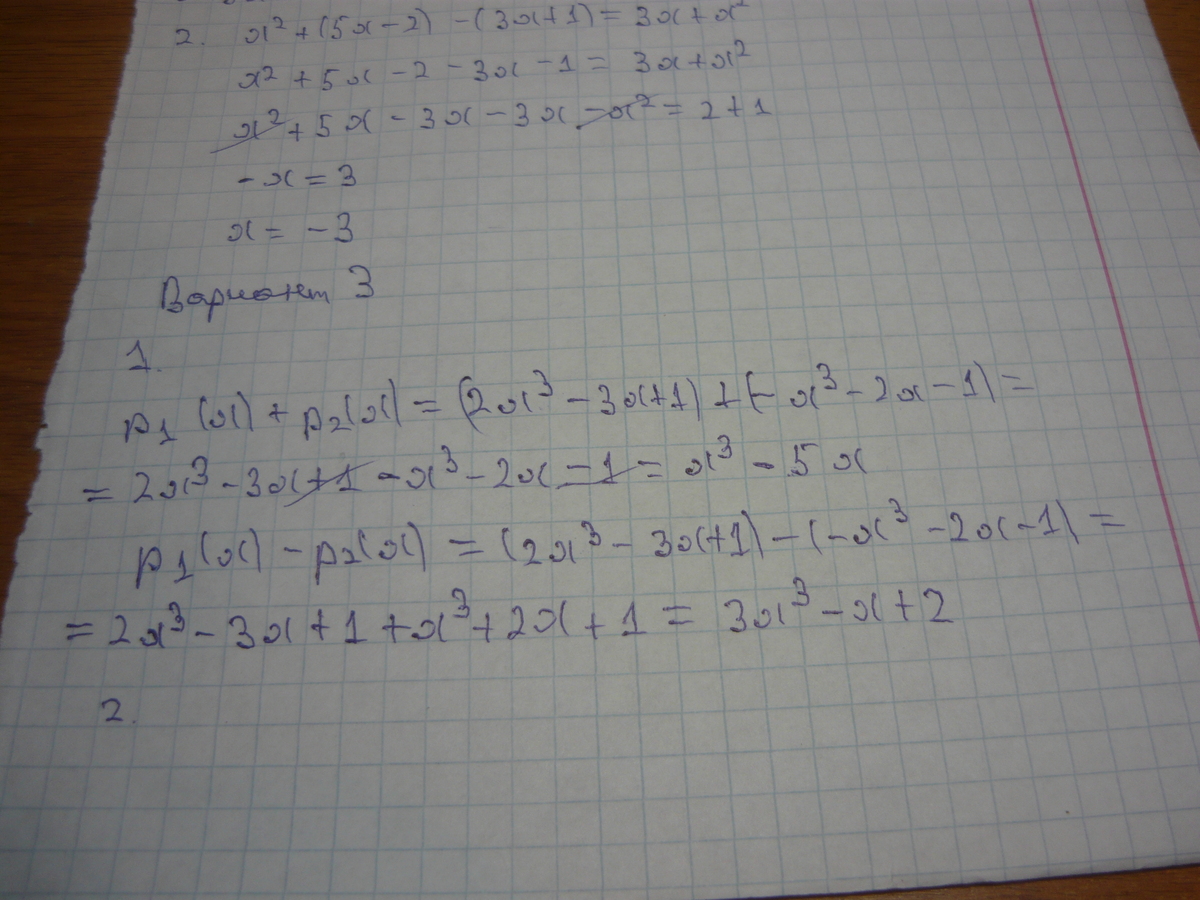 2. x² + (5x - 2) - (3x + 1) = 3x + x²
x² + 5x - 2 - 3x - 1 = 3x + x²
x² + 5x - 3x - 3x - x² = 2 + 1
- x = 3
x = - 3
Вариант 3
1.
p₁(x) + p₂(x) = (2x³ - 3x + 1) + (- x³ - 2x - 1) =
= 2x³ - 3x + 1 - x³ - 2x - 1 = x³ - 5x
p₁(x) - p₂(x) = (2x³ - 3x + 1) - (- x³ - 2x - 1) =
= 2x³ - 3x + 1 + x³ + 2x + 1 = 3x³ - x + 2
2.